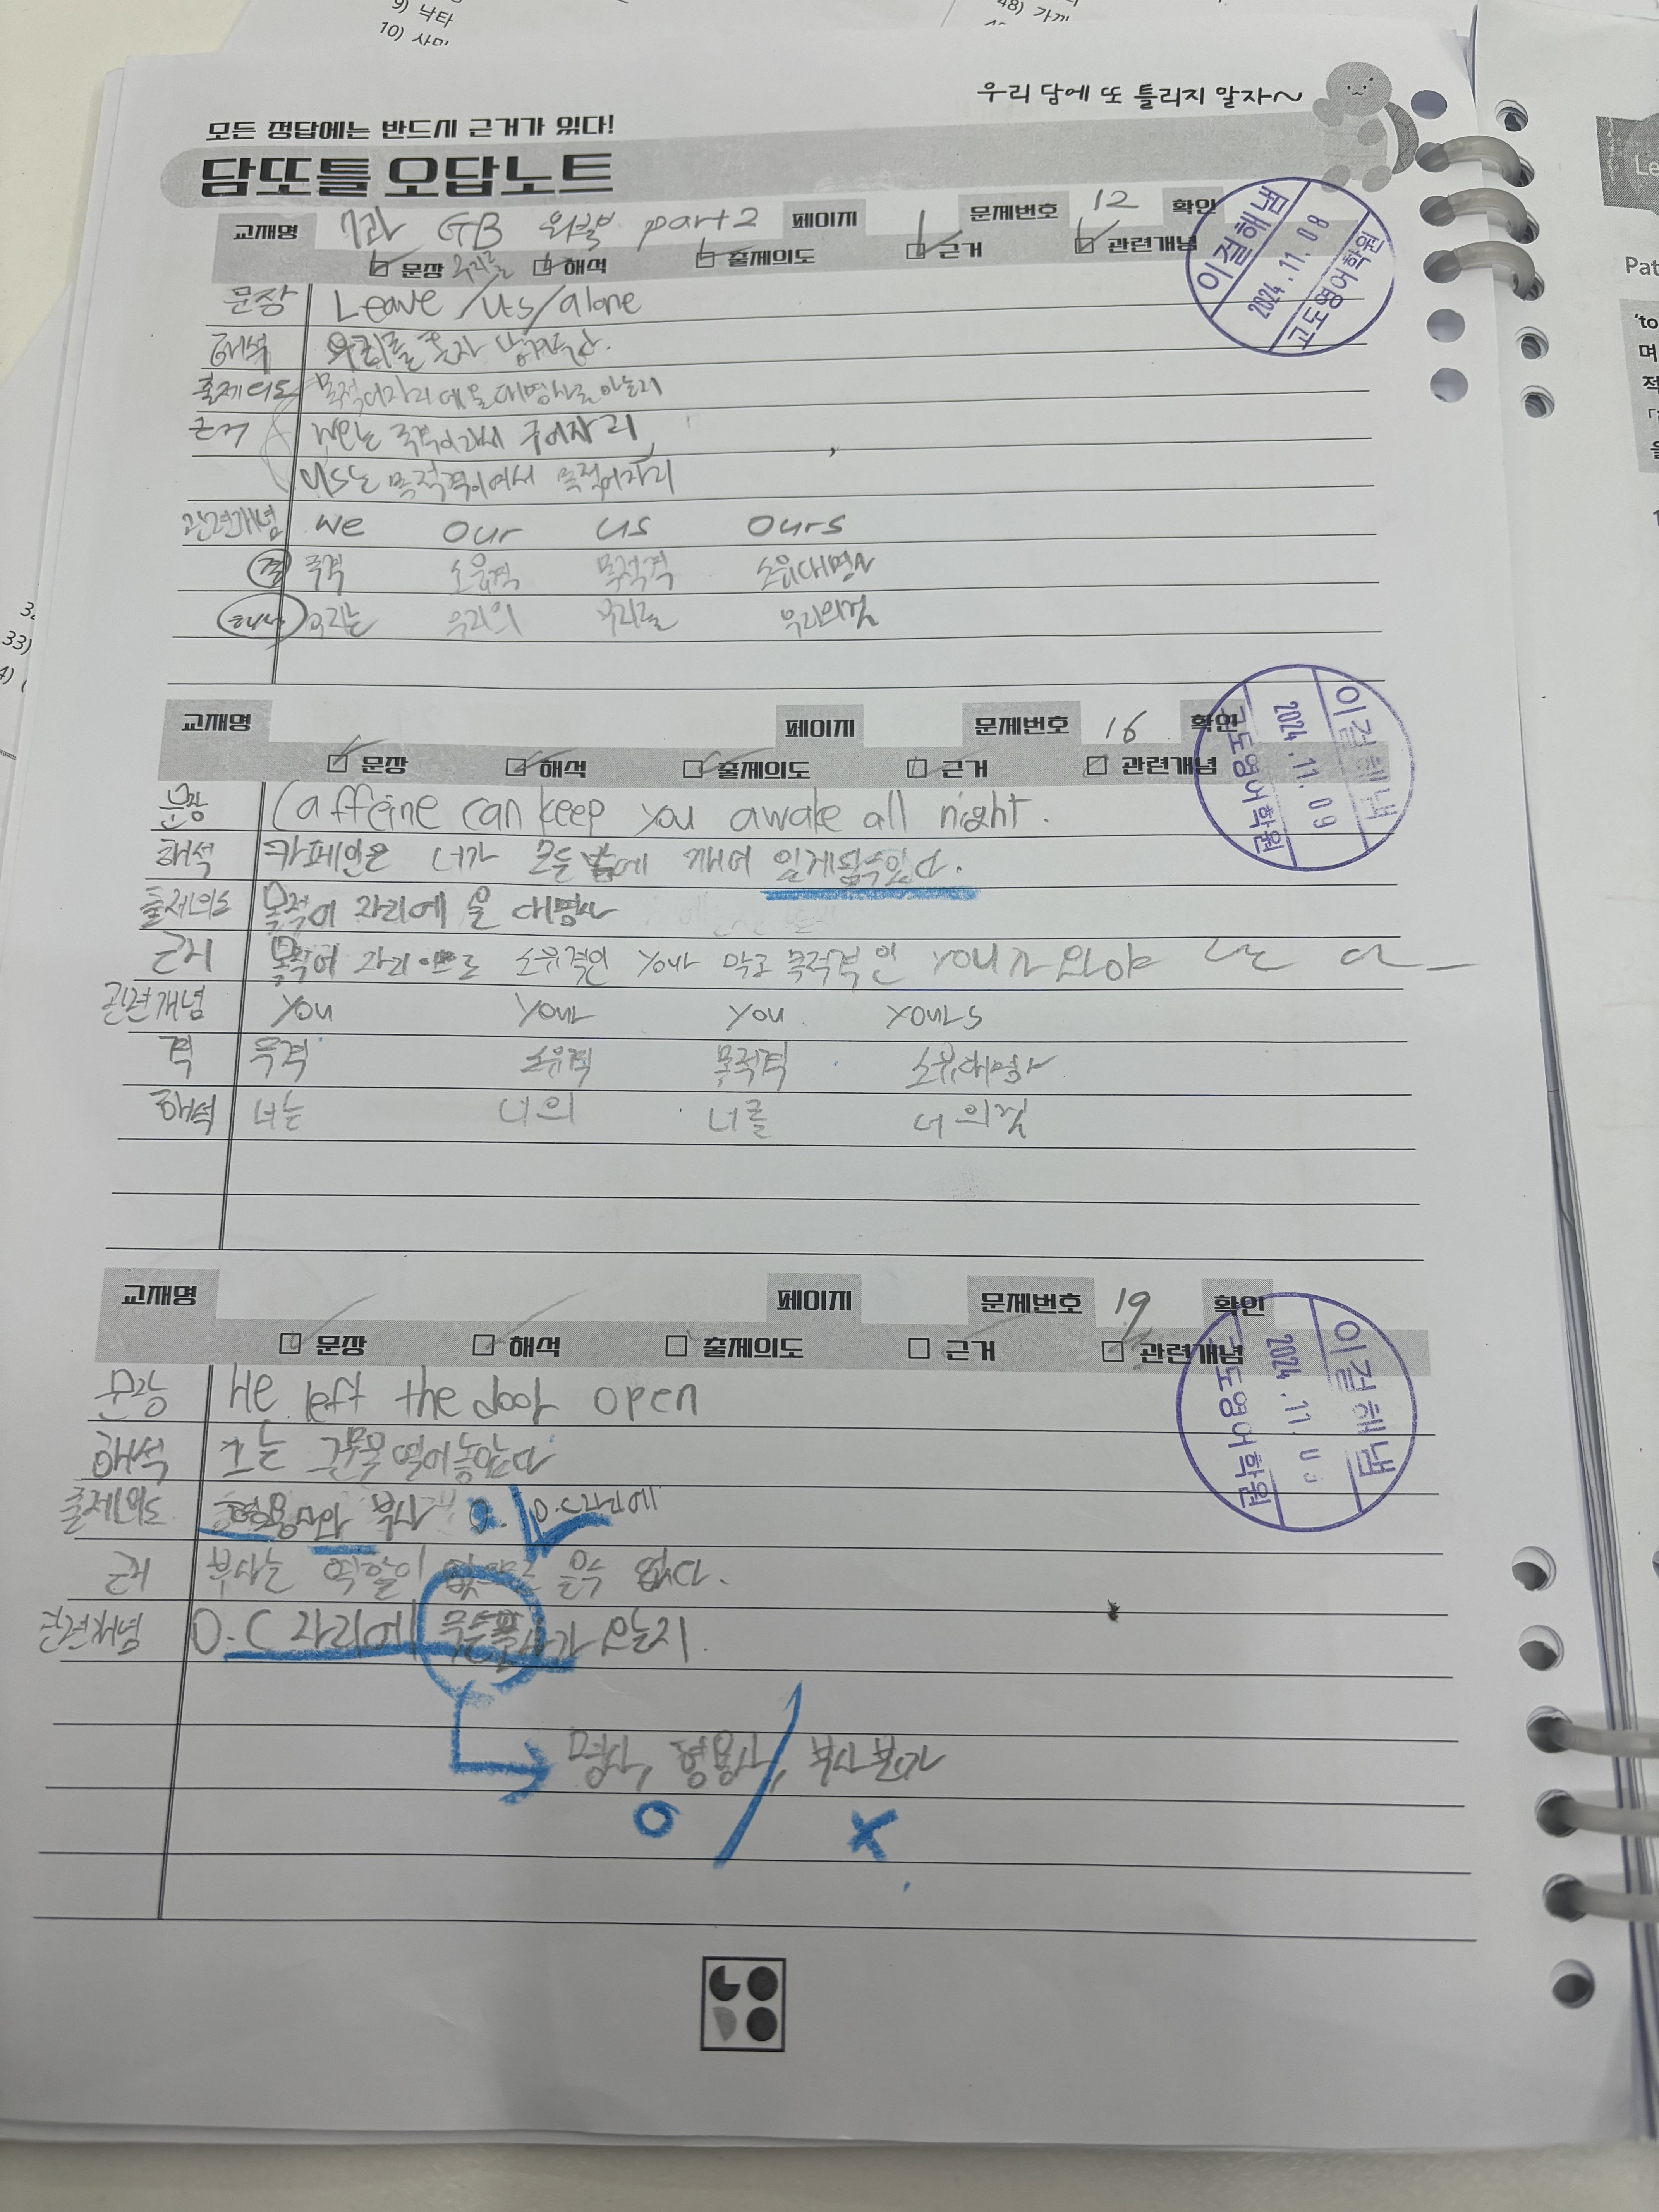 9) 낙타
10) 사막
48) 가까
우리 담에 또 틀리지 말자~
모든 정답에는 반드시 근거가 있다!
담또틀 오답노트
교재명 7과 GB 외부 part2 페이지 1 문제번호 12 확인
문장 해석 출제의도 근거 관련개념
이걸해냄
2024.11.08
고도영어학원
우리를
문장 Leave / us / alone
해석 우리를 혼자 남겨둬라.
출제의도 목적어자리에 올 대명사로 아는지
근거 we는 주격이라서 주어자리,
us는 목적격이여서 목적어자리
관련개념 we our us ours
격 주격 소유격 목적격 소유대명사
해석 우리는 우리의 우리를 우리의것
33)
교재명 페이지 문제번호 16 확인
문장 해석 출제의도 근거 관련개념
이걸해냄
2024.11.09
고도영어학원
문장 Caffeine can keep you awake all night.
해석 카페인은 너가 모든 밤에 깨어 있게 될 수 있다.
출제의도 목적어 자리에 올 대명사
근거 목적어 자리이므로 소유격인 your 말고 목적격인 you가 와야
관련개념 you your you yours
격 주격 소유격 목적격 소유대명사
해석 너는 너의 너를 너의것
교재명 페이지 문제번호 19 확인
문장 해석 출제의도 근거 관련개념
이걸해냄
2024.11.
고도영어학원
문장 He left the door open
해석 그는 그 문을 열어놓았다
출제의도 형용사와 부사 O.C자리에
근거 부사는 역할이 없으므로 올 수 없다.
관련개념 O.C 자리에 무슨품사가 오는지.
명사, 형용사, 부사 본가
O X
Le
Pat
'to
며
적